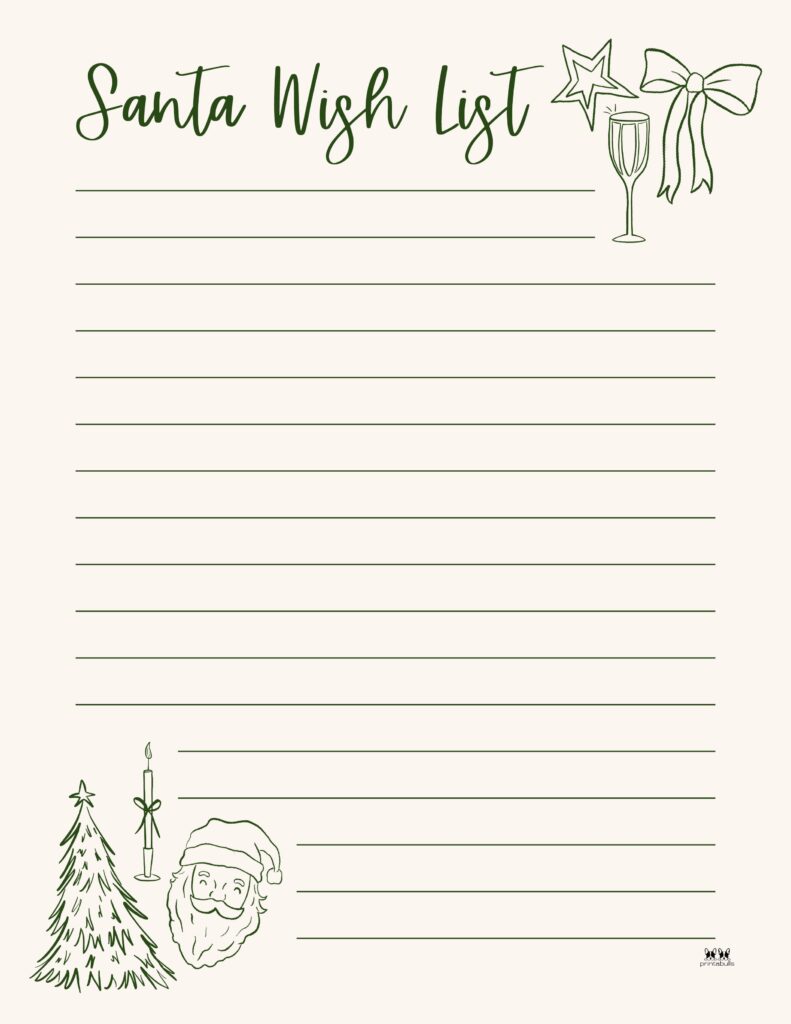 Santa Wish List
printabulls